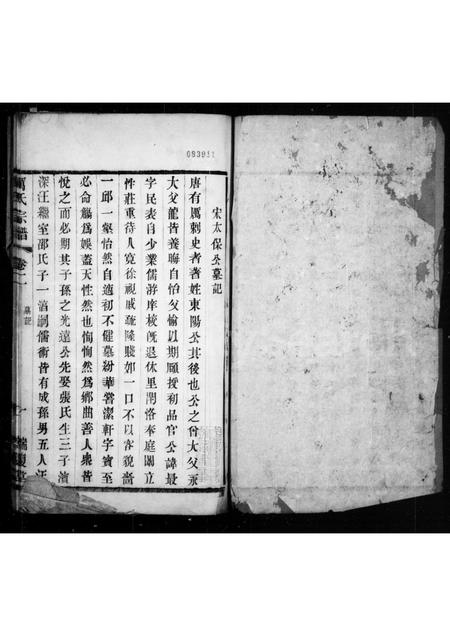 083951
宋太保公墓記
唐有厲刺史者著姓東陽公其後也公之曾大父汞
大父龍皆養晦自怡父愉以期願授初品官公諱最
字民表自少業儒游庠校旣退休里閈洛奉庭闈立
性莊重待人寬徐視戚疏隆賤如一口不以客貌嗇
一邱一壑怡然自適初不催慕紛華嘗潔軒字賓至
必命觴爲娛蓋天性然也恂恂然爲鄉曲善人衆皆
悅之而必期其子孫之光遠公先娶張氏生三子濱
深汪繼室邵氏子一湑嗣儒術皆有成孫男五人
氏宗譜
卷二
墓記